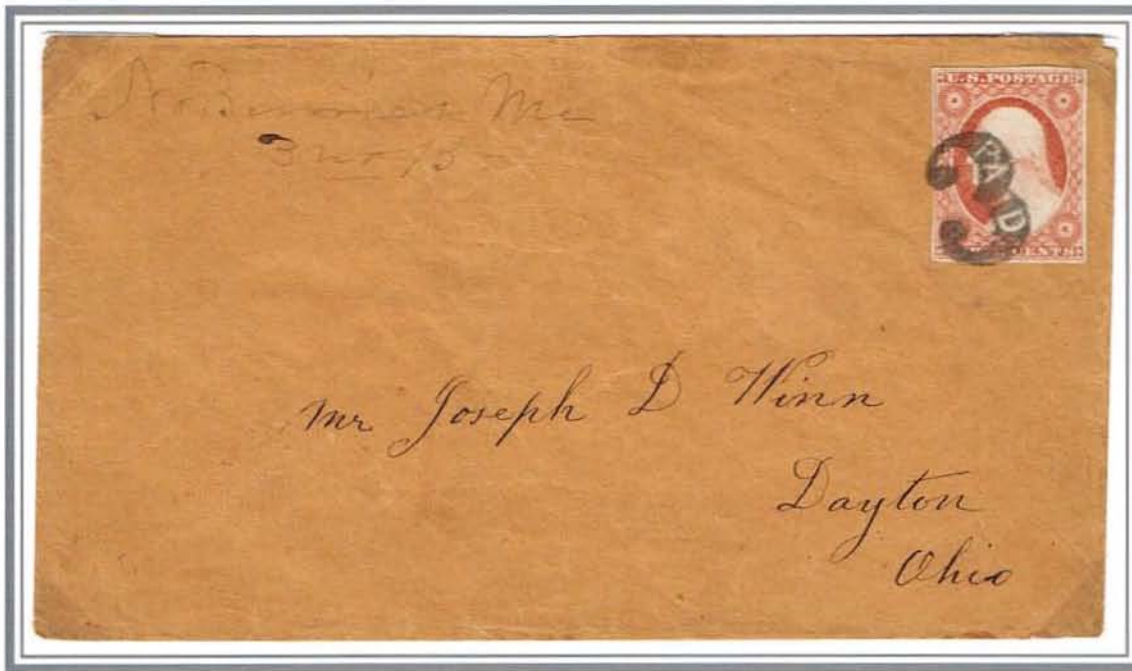 No. Berwick Me
U.S.POSTAGE
PAID
3
CENTS
Mr Joseph D Winn
Dayton
Ohio